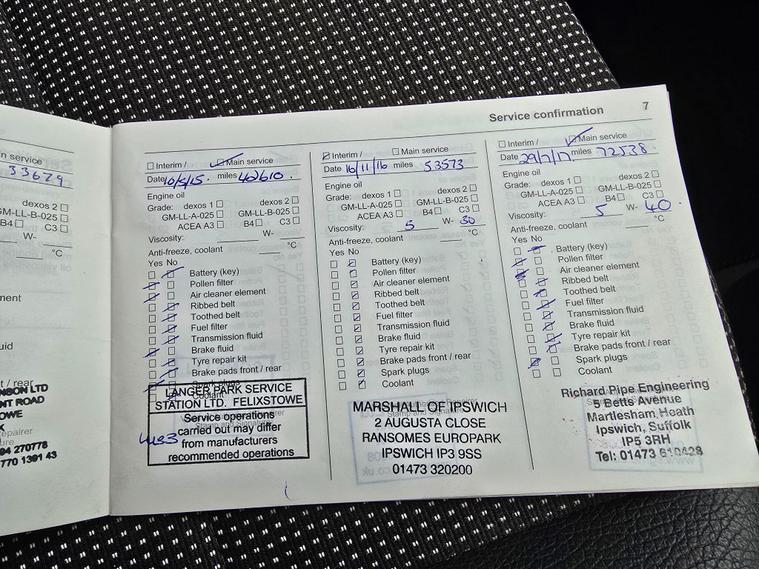 Service confirmation 7
in service
33679
dexos 2
GM-LL-B-025
B4 C3
W-
°C
ment
uid
t / rear
NSON LTD
NT ROAD
OWE
epairer
94 270778
770 1391 43
Interim / Main service
Date 10/5/15. miles 42610.
Engine oil
Grade: dexos 1 dexos 2
GM-LL-A-025 GM-LL-B-025
ACEA A3 B4 C3
Viscosity: W-
Anti-freeze, coolant °C
Yes No
Battery (key)
Pollen filter
Air cleaner element
Ribbed belt
Toothed belt
Fuel filter
Transmission fluid
Brake fluid
Tyre repair kit
Brake pads front / rear
LANGER PARK SERVICE
STATION LTD. FELIXSTOWE
Service operations
carried out may differ
from manufacturers
recommended operations
Interim / Main service
Date 16/11/16 miles 53573
Engine oil
Grade: dexos 1 dexos 2
GM-LL-A-025 GM-LL-B-025
ACEA A3 B4 C3
Viscosity: 5 W- 30
Anti-freeze, coolant °C
Yes No
Battery (key)
Pollen filter
Air cleaner element
Ribbed belt
Toothed belt
Fuel filter
Transmission fluid
Brake fluid
Tyre repair kit
Brake pads front / rear
Spark plugs
Coolant
MARSHALL OF IPSWICH
2 AUGUSTA CLOSE
RANSOMES EUROPARK
IPSWICH IP3 9SS
01473 320200
Interim / Main service
Date 29/7/17 miles 72538
Engine oil
Grade: dexos 1 dexos 2
GM-LL-A-025 GM-LL-B-025
ACEA A3 B4 C3
Viscosity: 5 W- 40
Anti-freeze, coolant °C
Yes No
Battery (key)
Pollen filter
Air cleaner element
Ribbed belt
Toothed belt
Fuel filter
Transmission fluid
Brake fluid
Tyre repair kit
Brake pads front / rear
Spark plugs
Coolant
Richard Pipe Engineering
5 Betts Avenue
Martlesham Heath
Ipswich, Suffolk
IP5 3RH
Tel: 01473